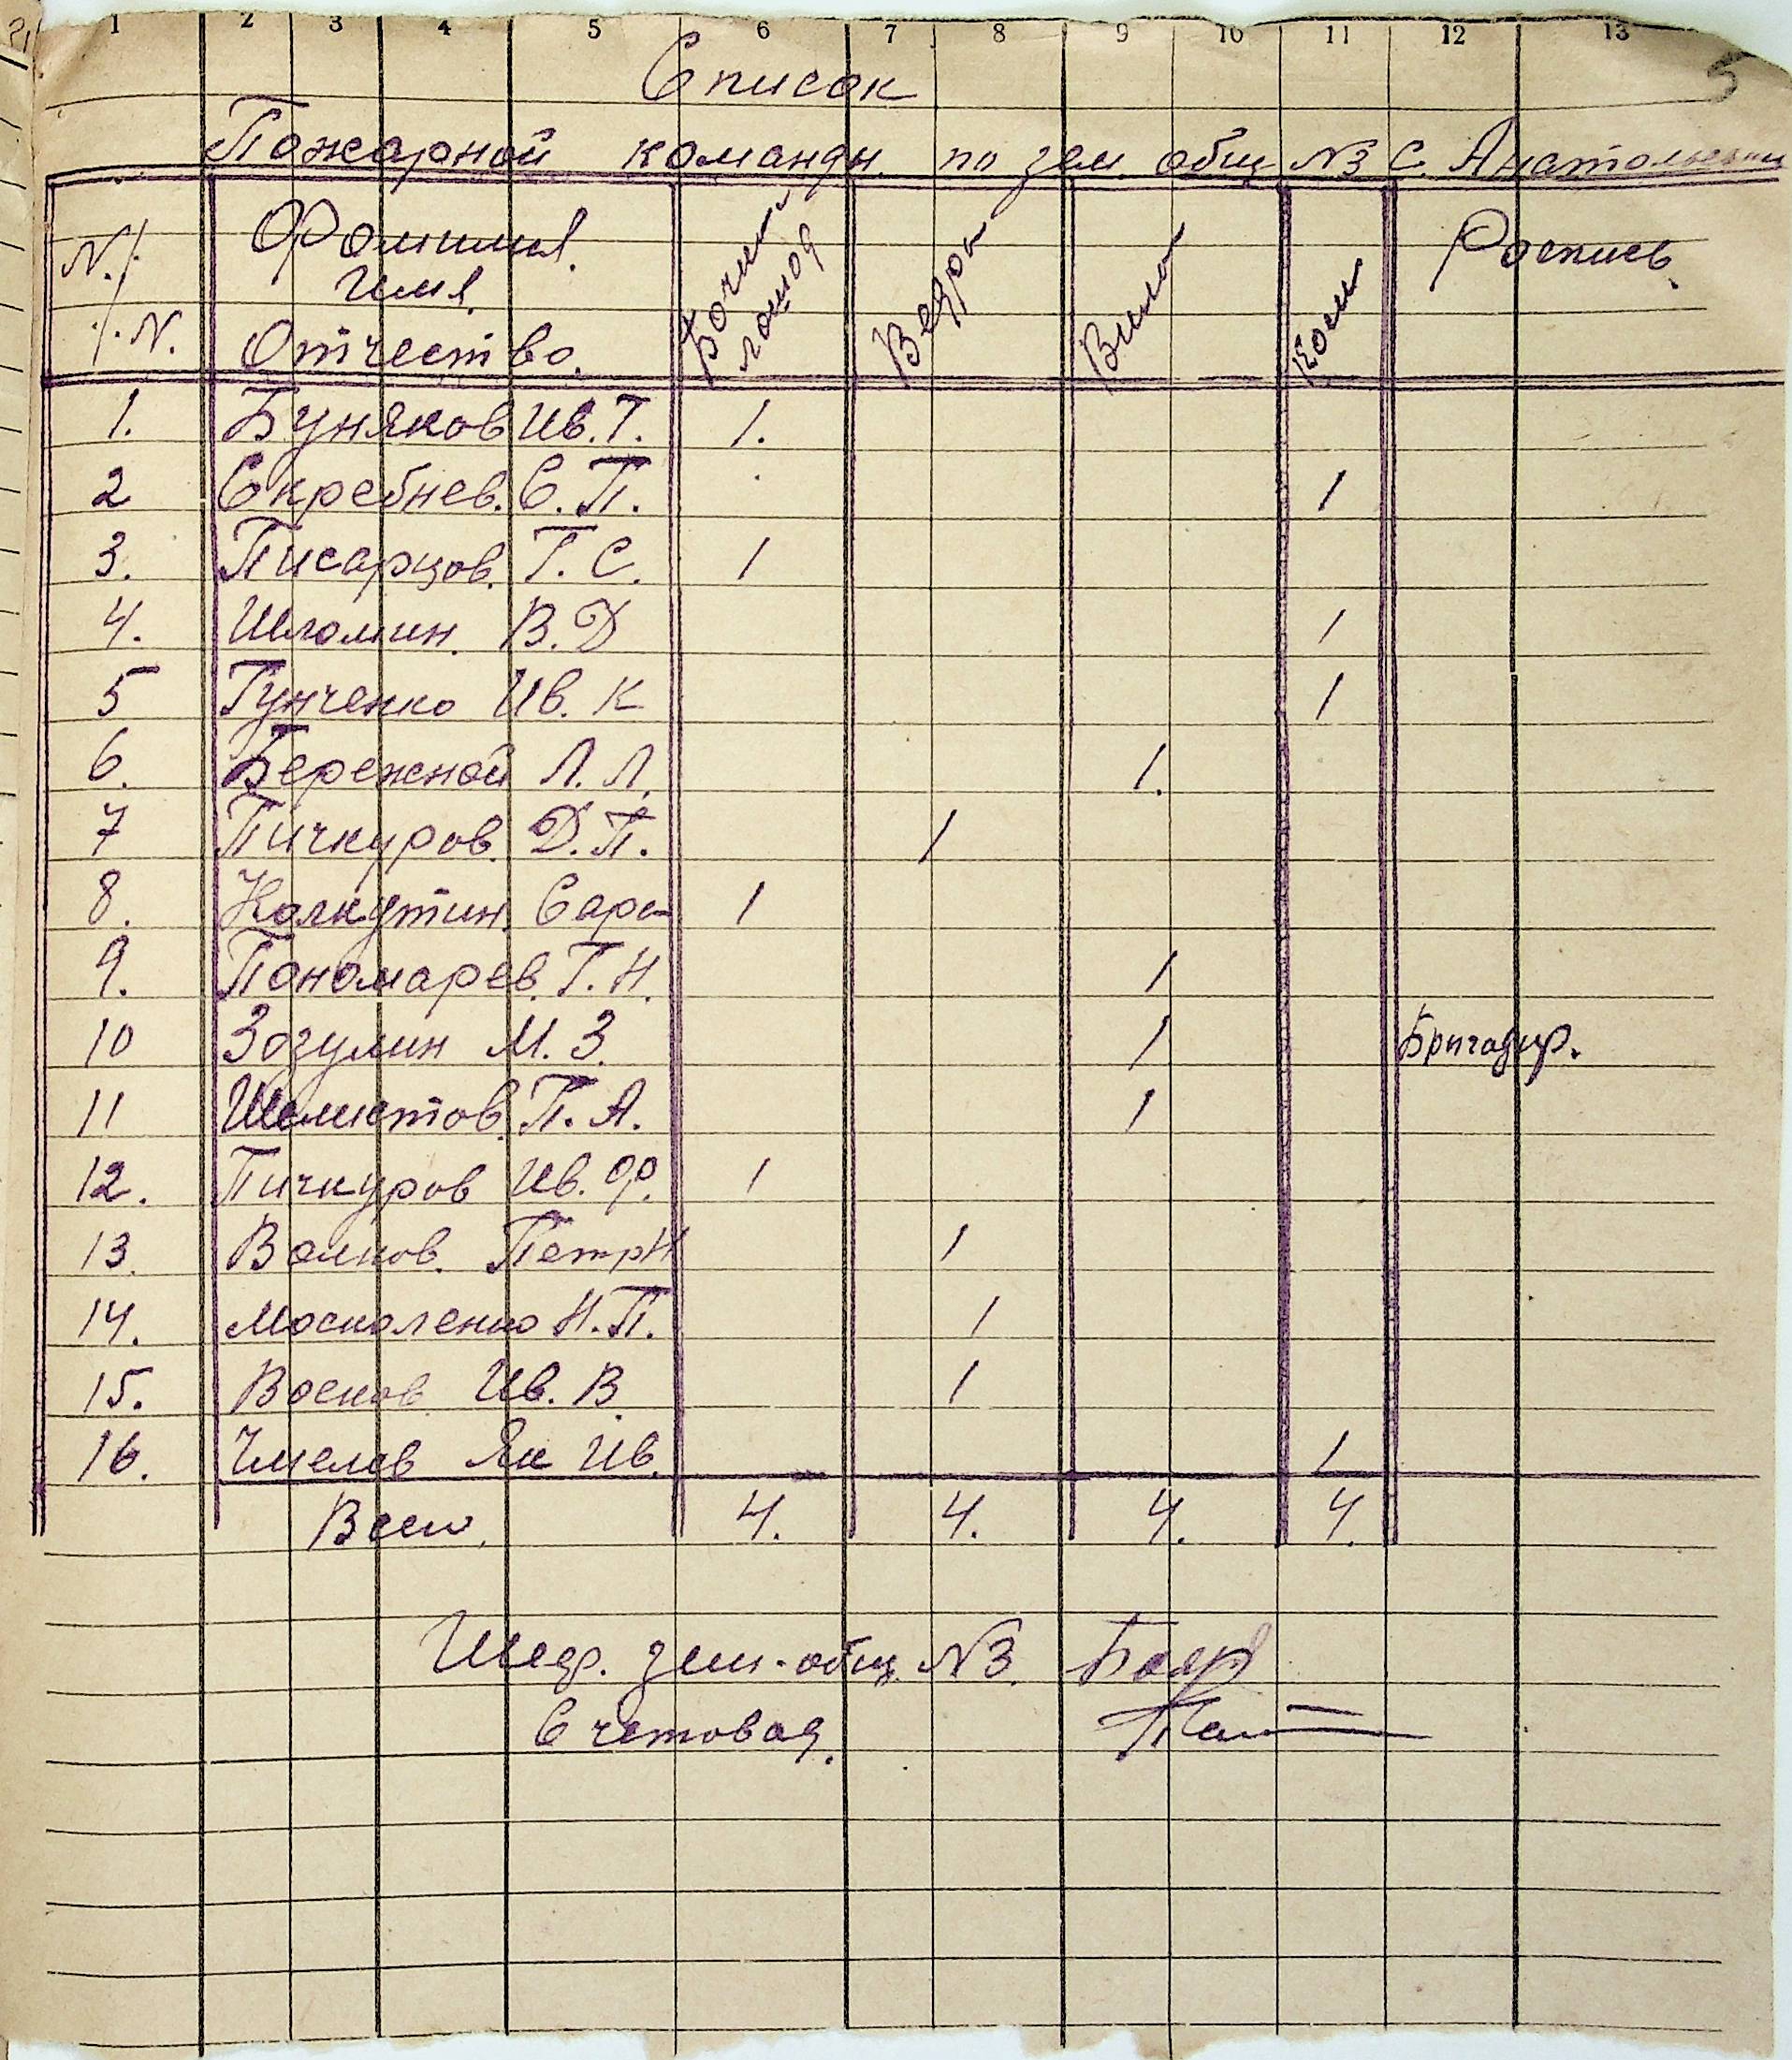 1 2 3 4 5 6 7 8 9 10 11 12 13
5
Список
Пожарной команды по зем. общ N3 С. Анатольевки
N./. ./.N. Фамилия. Имя. Отчество. Бочки лошад Ведра Вила Косы Роспись.
1. Буняков Ив. Т. 1.
2 Скребнев. С. П. 1
3. Писарцов. Т. С. 1
4. Шломин. В. Д 1
5 Гунченко Ив. К 1
6. Бережной Л. Л. 1.
7 Пичкуров. Д. П. 1
8. Калкутин. Сара 1
9. Пономарев. Т. Н. 1
10 Зозулин М. З. 1 Бригадир.
11 Шелистов. П. А. 1
12. Пичкуров Ив. Ф. 1
13. Волков. Петр Н 1
14. Москаленко Н. П. 1
15. Восков Ив. В. 1
16. Чмелев Як Ив. 1
Всего. 4. 4. 4. 4.
зем. общ. N3.
Счетовод.